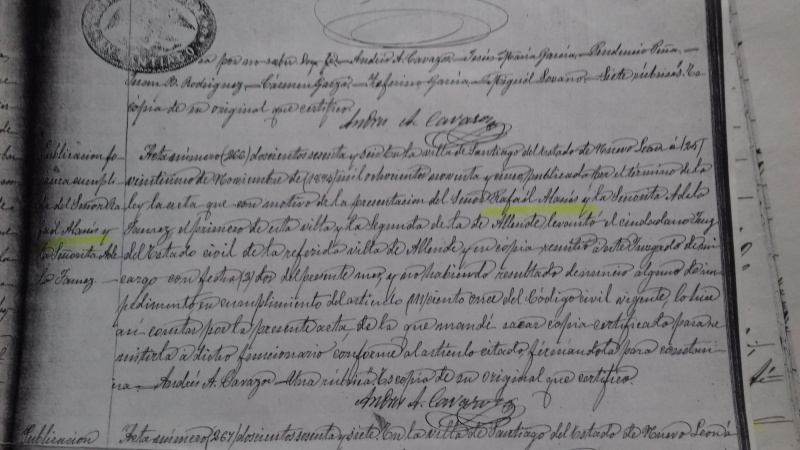 por no saber. Doy fé. Andrés A. Cavazos. Jesús María García. Prudencio Peña.
Juan B. Rodriguez. Cármen Garza. Zeferino García. Miguel Lozano. Siete rúbricas. Es
copia de su original que certifico.
Andrés A. Cavazos
Publicacion
del Señor Ra
faél Alanís y
la Señorita Ade
la Tamez.
Acta número (266) doscientos sesenta y seis En la villa de Santiago del Estado de Nuevo Leon á (25)
veinticinco de Noviembre de mil ochocientos noventa y cinco publicado por el termino de la
ley la acta que con motivo de la presentacion del Señor Rafaél Alanís y la Señorita Adela
Tamez, el primero de esta villa y la segunda de la de Allende levantó el ciudadano Juez
del Estado civil de la referida villa de Allende y en copia remitió a este Juzgado de mi
cargo con fecha (2) dos del presente mes, y no habiendo resultado denuncio alguno de im
pedimento en cumplimiento del artículo (111) ciento once del Código civil vigente, lo hice
así constar por la presente acta, de la que mandé sacar copia certificada para re
mitirla a dicho funcionario conforme al artículo citado, firmándola para constan
cia. Andrés A. Cavazos. Una rúbrica. Es copia de su original que certifico.
Andrés A. Cavazos
Publicacion
Acta número (267) doscientos sesenta y siete. En la villa de Santiago del Estado de Nuevo Leon á